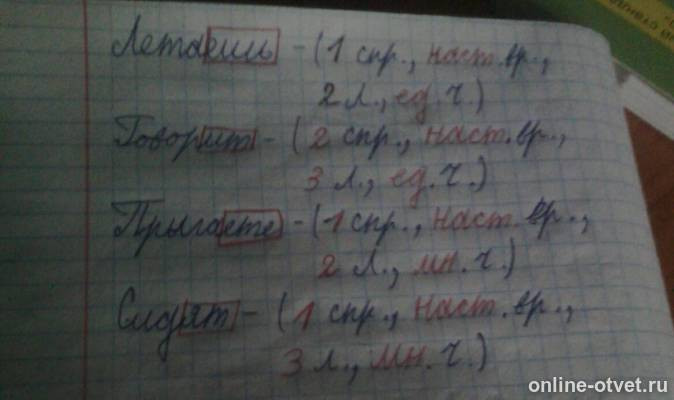 Летаешь - (1 спр., наст. вр.,
2 л., ед. ч.)
Говорит - (2 спр., наст. вр.,
3 л., ед. ч.)
Прыгаете - (1 спр., наст. вр.,
2 л., мн. ч.)
Сидят - (1 спр., наст. вр.,
3 л., мн. ч.)
online-otvet.ru